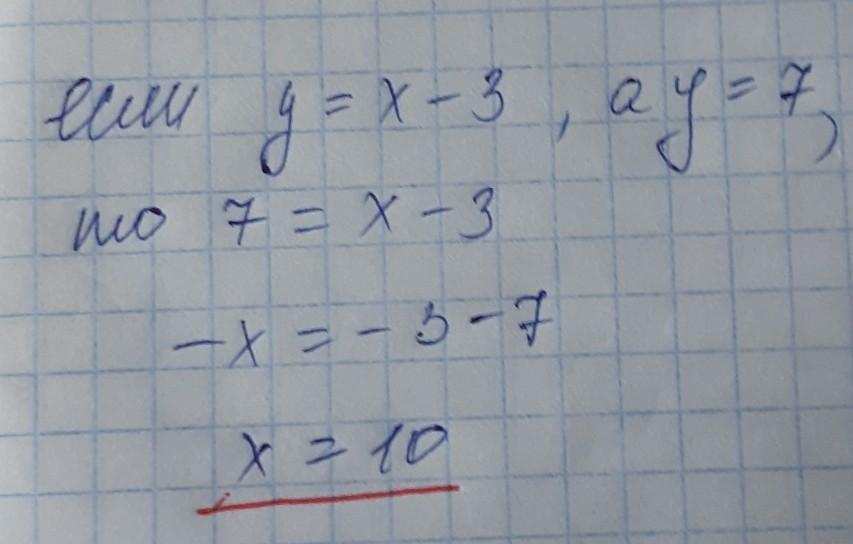 если y = x - 3 , а y = 7,
то 7 = x - 3
-x = - 3 - 7
x = 10